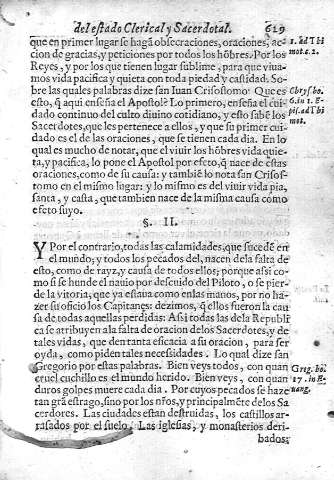 del estado Clerical, y Sacerdotal. 629
que en primer lugar se hagã obsecraciones, oraciones, ac- 1. ad Ti
cion de gracias, y peticiones por todos los hõbres. Por los mot. c. 2.
Reyes, y por los que tienen lugar sublime, para que viua-
mos vida pacifica y quieta con toda piedad y castidad. So-
bre las quales palabras dize san Iuan Crisostomo: Que es Chrys. ho.
esto, q̃ aqui enseña el Apostol? Lo primero, enseña el cui- 6. in 1. E-
dado continuo del culto diuino cotidiano, y esto sabẽ los pis. ad Ti
Sacerdotes, que les pertenece a ellos, y que su primer cui- mot.
dado es el de las oraciones, que se tienen cada dia. En lo
qual es mucho de notar, que el viuir los hõbres vida quie-
ta, y pacifica, lo pone el Apostol por efeto, q̃ nace de estas
oraciones, como de su causa: y tambiẽ lo nota san Crisos-
tomo en el mismo lugar: y lo mismo es del viuir vida pia,
santa, y casta, que tambien nace de la misma causa como
efeto suyo.
§. II.
Y Por el contrario, todas las calamidades, que sucedẽ en
el mundo; y todos los pecados del, nacen de la falta de
esto, como de rayz, y causa de todos ellos; porque assi co-
mo si se hunde el nauio por descuido del Piloto, o se pier-
de la vitoria, que ya estaua como en las manos, por no ha-
zer su oficio los Capitanes: dezimos, q̃ ellos fueron la cau-
sa de todas aquellas perdidas: Assi todas las de la Republi
ca se atribuyen a la falta de oracion de los Sacerdotes, y de
tales vidas, que den tanta eficacia a su oracion, para ser
oyda, como piden tales necessidades. Lo qual dize san
Gregorio por estas palabras. Bien veys todos, con quan Greg. ho.
cruel cuchillo es el mundo herido. Bien veys, con quan 17. in E-
duros golpes muere cada dia. Por cuyos pecados se haze uang.
tan grã estrago, sino por los nr̃os, y principalmẽte de los Sa
cerdotes. Las ciudades estan destruidas, los castillos ar-
rasados por el suelo. Las iglesias, y monasterios deri-
bados;